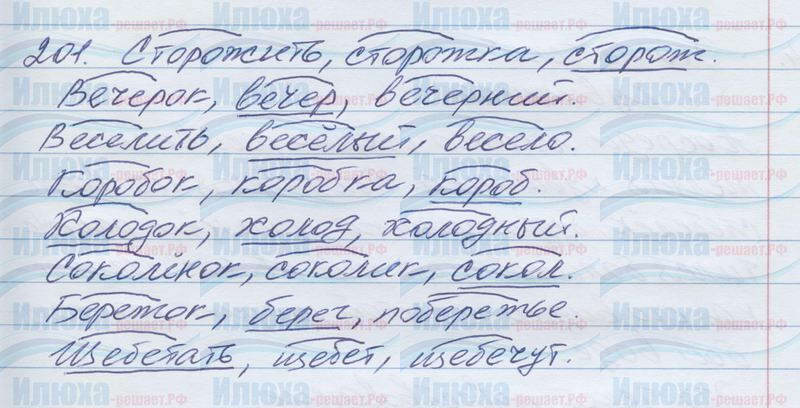 201. Сторожить, сторожка, сторож.
Вечерок, вечер, вечерний.
Веселить, весёлый, весело.
Коробок, коробка, короб.
Холодок, холод, холодный.
Соколёнок, соколик, сокол.
Бережок, берег, побережье.
Щебетать, щебет, щебечут.
Илюха-решает.РФ